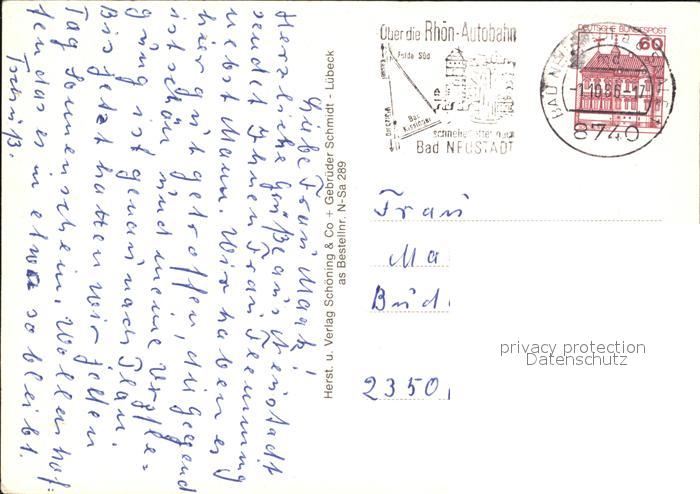 Liebe Frau Maak!
Herzliche Grüße aus Neustadt
sendet Ihnen Frau Flemming
nebst Mann. Wir haben es
hier gut getroffen, die Gegend
ist schön und meine Verpfle=
gung ist genau nach Plan.
Bis jetzt hatten wir jeden
Tag Sonnenschein. Wollen hof=
fen das es in etwa so bleibt.
Tschüß.
Herst. u. Verlag Schöning & Co + Gebrüder Schmidt - Lübeck
as Bestellnr. N-Sa 289
Über die Rhön-Autobahn
Fulda Süd
Bad Kissingen
schneller
Bad NEUSTADT
DEUTSCHE BUNDESPOST
60
BAD NEUSTADT
-1.10.86-17
8740
Frau
Ma
Büd
2350
privacy protection
Datenschutz